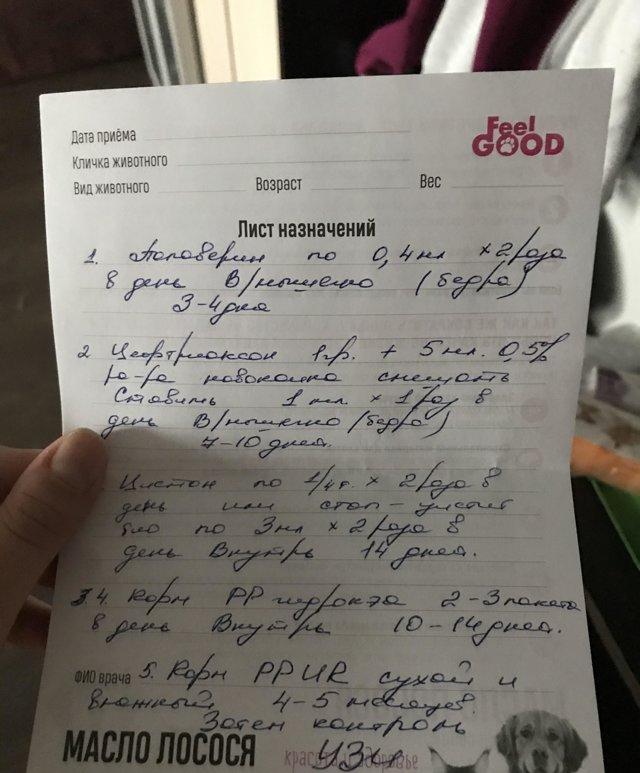 Feel
GOOD
Дата приёма
Кличка животного
Вид животного Возраст Вес
Лист назначений
1. Папаверин по 0,4 мл × 2 раза
в день В/мышечно (бедро)
3-4 дня
2 Цефтриаксон 1 гр. + 5 мл. 0,5%
р-ра новокаина смешать
Ставить 1 мл × 1 раз в
день В/мышечно (бедро)
7-10 дней.
Цистон по 1/4 т. × 2 раза в
день или стоп-цистит
био по 3 мл × 2 раза в
день Внутрь 14 дней.
4. Корм РР гидрокэа 2-3 пакета
в день Внутрь 10-14 дней.
ФИО врача 5. Корм РР UR сухой и
влажный 4-5 месяцев.
Затем контроль
УЗИ
МАСЛО ЛОСОСЯ